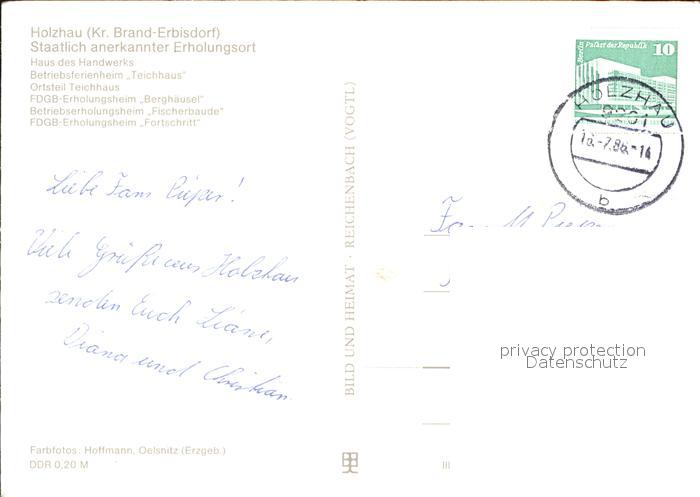 Holzhau (Kr. Brand-Erbisdorf)
Staatlich anerkannter Erholungsort
Haus des Handwerks
Betriebsferienheim „Teichhaus"
Ortsteil Teichhaus
FDGB-Erholungsheim „Berghäusel"
Betriebserholungsheim „Fischerbaude"
FDGB-Erholungsheim „Fortschritt"
Liebe Fam. Pieper!
Viele Grüße aus Holzhau
senden Euch Liane,
Diana und Christian
Farbfotos: Hoffmann, Oelsnitz (Erzgeb.)
DDR 0,20 M
BILD UND HEIMAT · REICHENBACH (VOGTL)
Berlin Palast der Republik 10
HOLZHAU
9201
b
privacy protection
Datenschutz
III